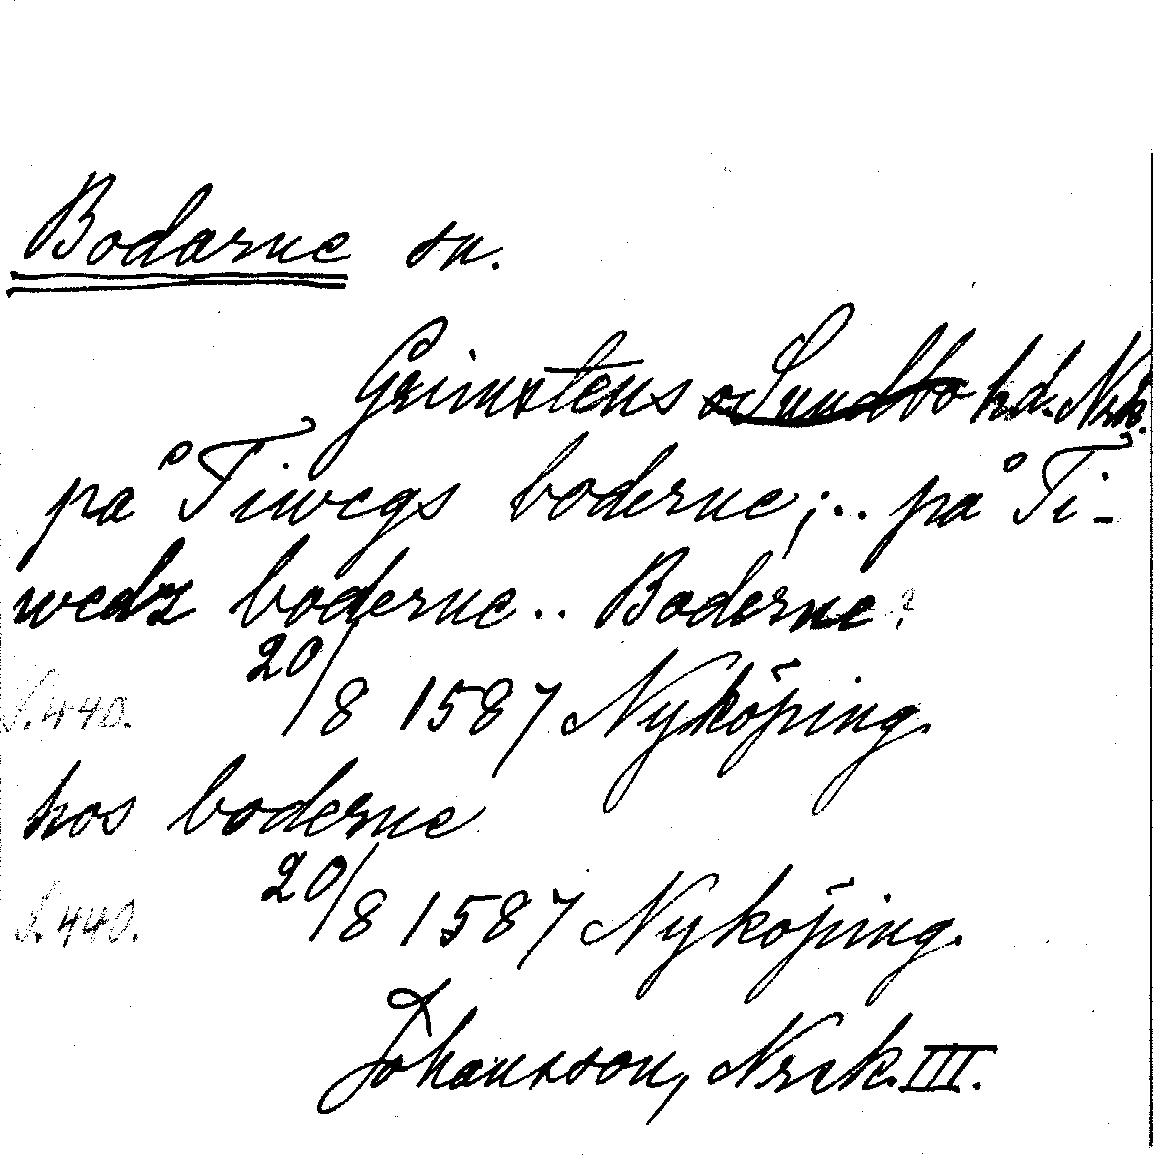 Bodarne sn.
Grimstens o Sundbo hd. Nrk.
på Tiwegs boderne; .. på Ti-
wedz boderne .. Boderne?
S. 440. 20/8 1587 Nyköping.
hos boderne
S. 440. 20/8 1587 Nyköping.
Johansson, Nrck. III.